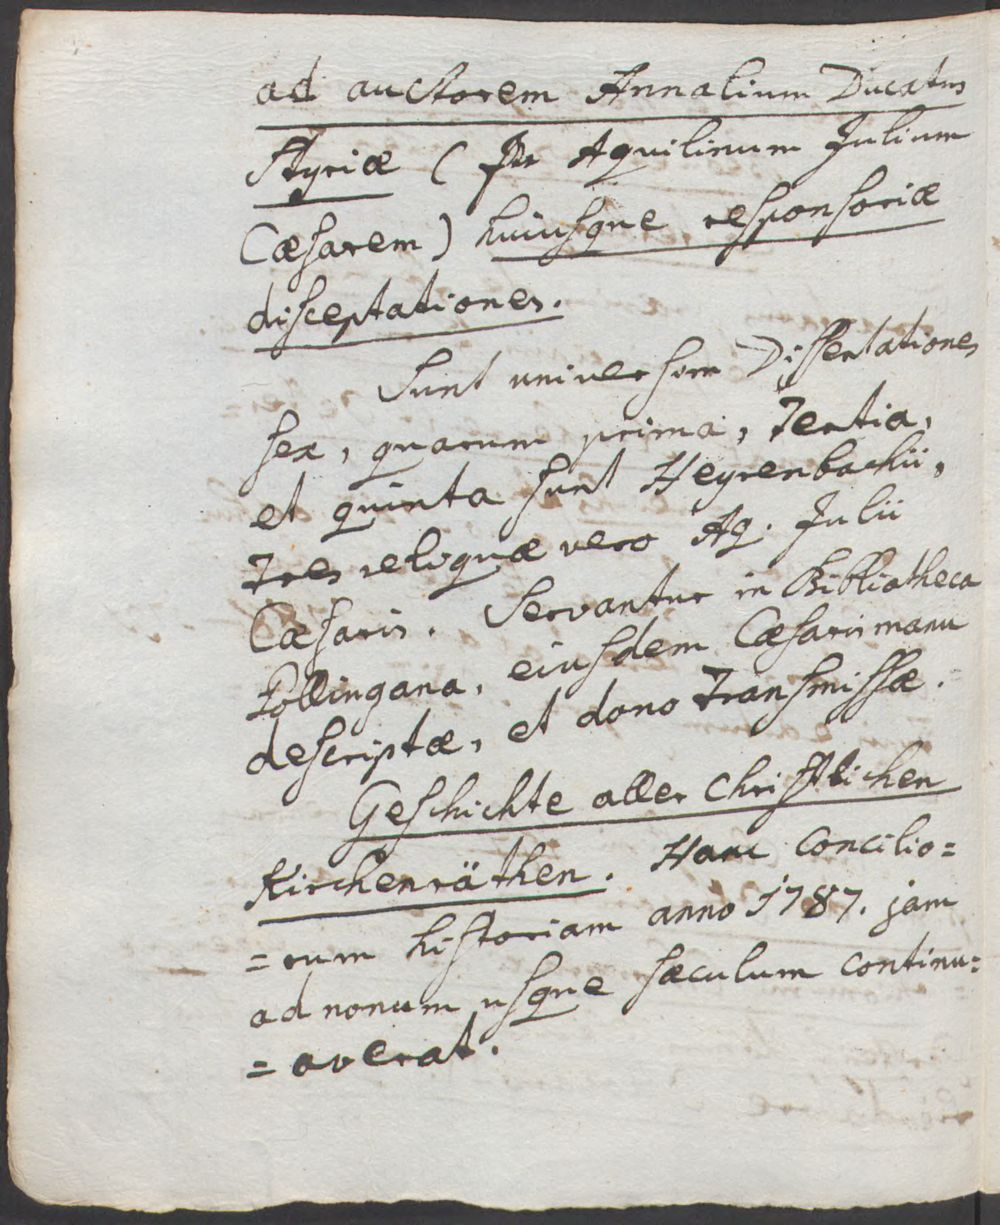 ad auctorem Annalium Ducatus
Styriæ ( per Aquilinum Julium
Cæsarem ) huiusque responsoriæ
disceptationes.
Sunt universim Dissertationes
sex, quarum prima, Tertia,
et quinta sunt Heyrenbachii,
Tres reliquæ vero Aq. Julii
Cæsaris. Servantur in Bibliotheca
Pollingana, eiusdem Cæsaris manu
descriptæ, et dono Transmissæ.
Geschichte aller Christlichen
Kirchenräthen. Hanc concilio=
=rum historiam anno 1787. jam
ad nonum usque sæculum continu=
=averat.